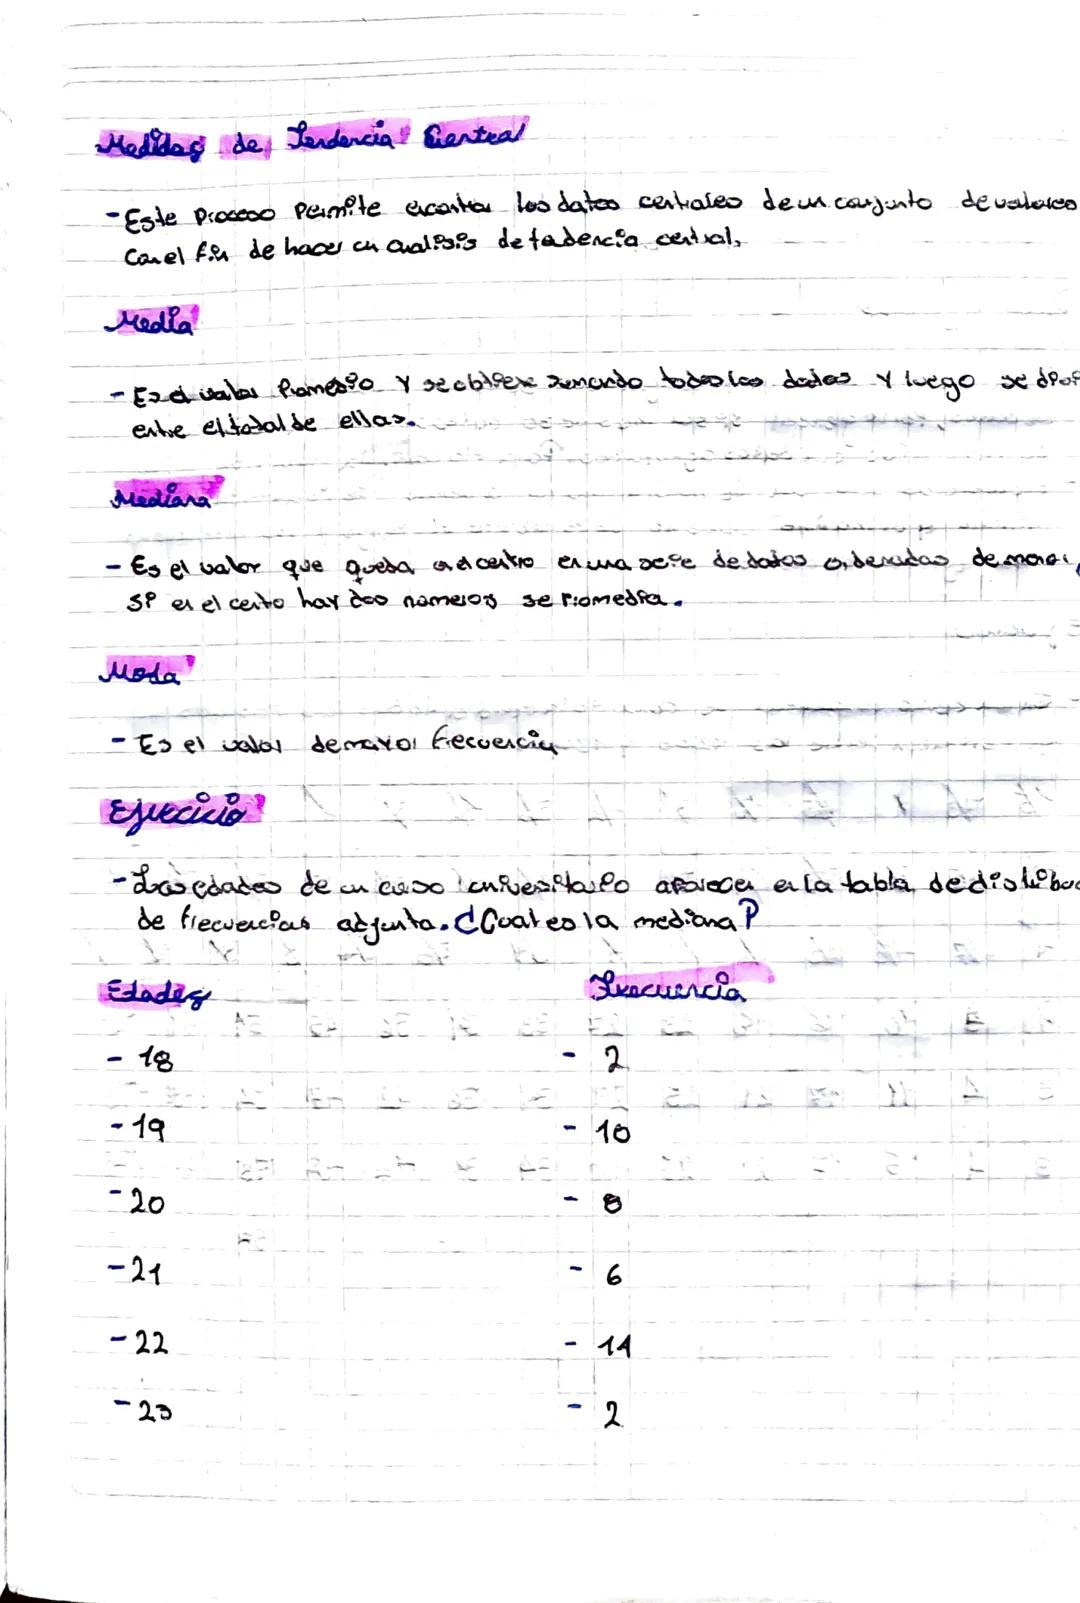 Medidas de Tendencia Central
- Este proceso permite encontrar los datos centrales de un conjunto de valores
Con el fin de hacer un analisis de tendencia central.
Media
- Es el valor Promedio y se obtiene sumando todos los dados y luego se divi
entre el total de ellas.
Mediana
- Es el valor que queda en el centro en una serie de datos ordenadas de
si en el cento hay dos numeros se promedia.
Moda
- Es el valor de mayor frecuencia
Ejercicio
- Las edades de un curso universitario aparecen en la tabla de distribuc
de frecuencias adjunta. ¿Cual es la mediana?
Edades Frecuencia
- 18 - 2
- 19 - 10
- 20 - 8
- 21 - 6
- 22 - 14
- 23 - 2